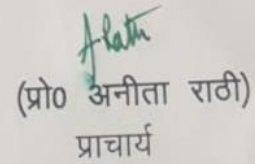 (प्रो0 अनीता राठी)
प्राचार्य